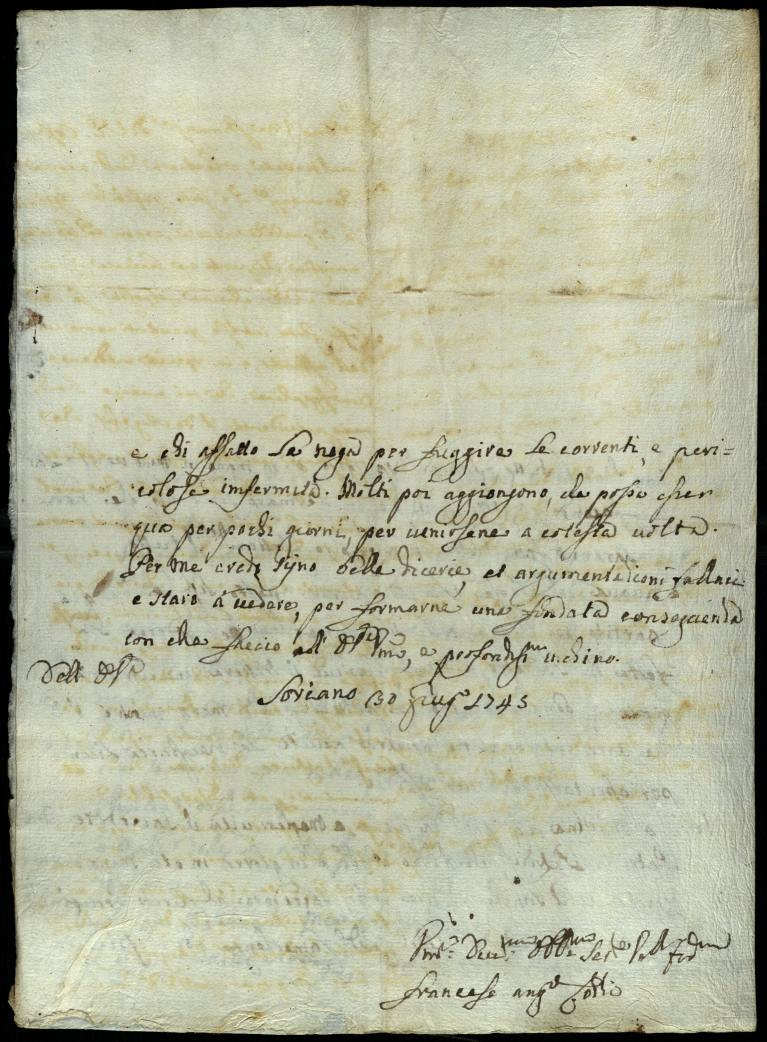 e chi affatto la nega per fuggire le correnti, e peri=
colose infermità. Molti poi aggiongono, che possa esser
qua per pochi giorni, per venirsene a cotesta volta.
Per me credo siino delle dicerie, et argumentationi fallaci
e staro à vedere, per formarne una fondata conseguenza
con che faccio all' , e profondissmo inchino.
Dell'
Soriano 30 Giugo 1745
Francesc Ango